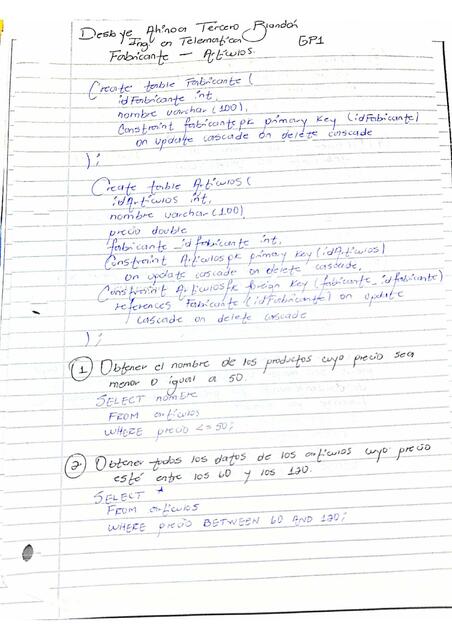 Desbye Ahinoa Tercero Blandón
Ing en Telematica GP1
Fabricante — Articulos.
Create table Fabricante (
idFabricante int,
nombre varchar (100),
Constraint fabricantepk primary key (idFabricante)
on update cascade on delete cascade
);
Create table Articulos (
idArticulos int,
nombre varchar (100)
precio double
fabricante_idfabricante int,
Constraint Articulospk primary key (idArticulos)
on update cascade on delete cascade,
Constraint Articulosfk foreign key (fabricante_idfabricante)
references Fabricante (idFabricante) on update
cascade on delete cascade
);
1 Obtener el nombre de los productos cuyo precio sea
menor o igual a 50.
SELECT nombre
FROM articulos
WHERE precio <= 50;
2 Obtener todos los datos de los articulos cuyo precio
esté entre los 60 y los 120.
SELECT *
FROM articulos
WHERE precio BETWEEN 60 AND 120;